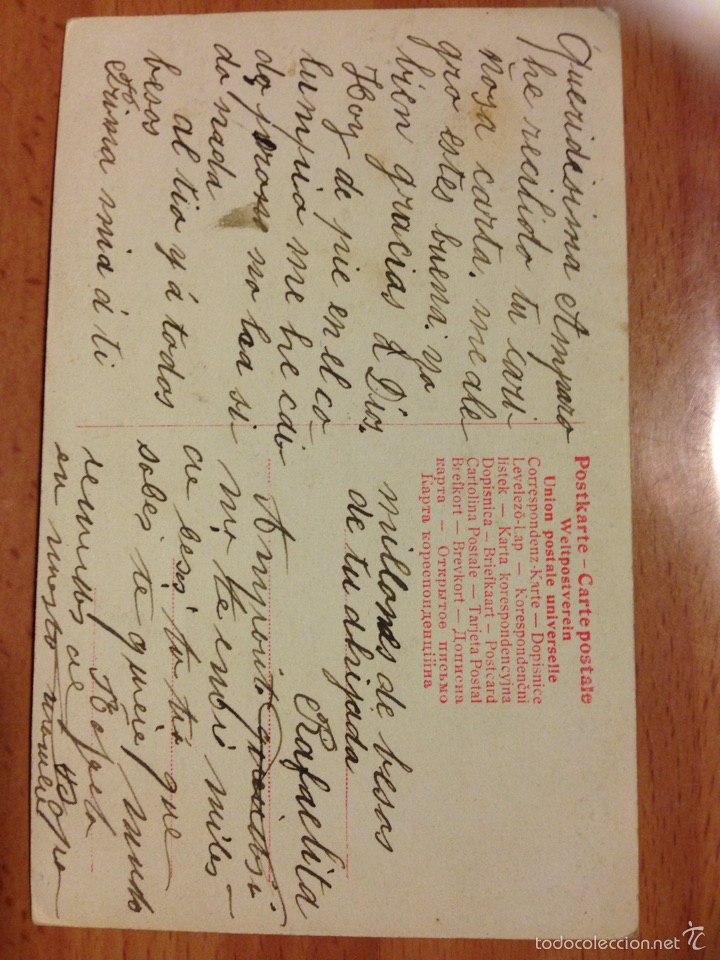 Postkarte – Carte postale
Weltpostverein
Union postale universelle
Correspondenz-Karte – Dopisnice
Levelező-Lap – Korespondenční
lístek – Karta korespondencyjna
Dopisnica – Briefkaart – Postcard
Cartolina Postale – Tarjeta Postal
Brefkort – Brevkort – Дописна
карта – Открытое письмо
Карта кореспонденційна
Queridesima Amparo
he recibido tu cari-
ñosa carta. me ale
gro estes buena. yo
bien gracias á Dios.
Hoy de pie en el co
lumpio me he cai
do pero no ha si
do nada
al tio y á todos
besos
Prima mia á ti
millones de besos
de tu ahijada
Rafaelita
te embio miles
de besos tu tia que
sabes te quiere mucho
Pepita
recuerdos de Pepe
todocoleccion.net